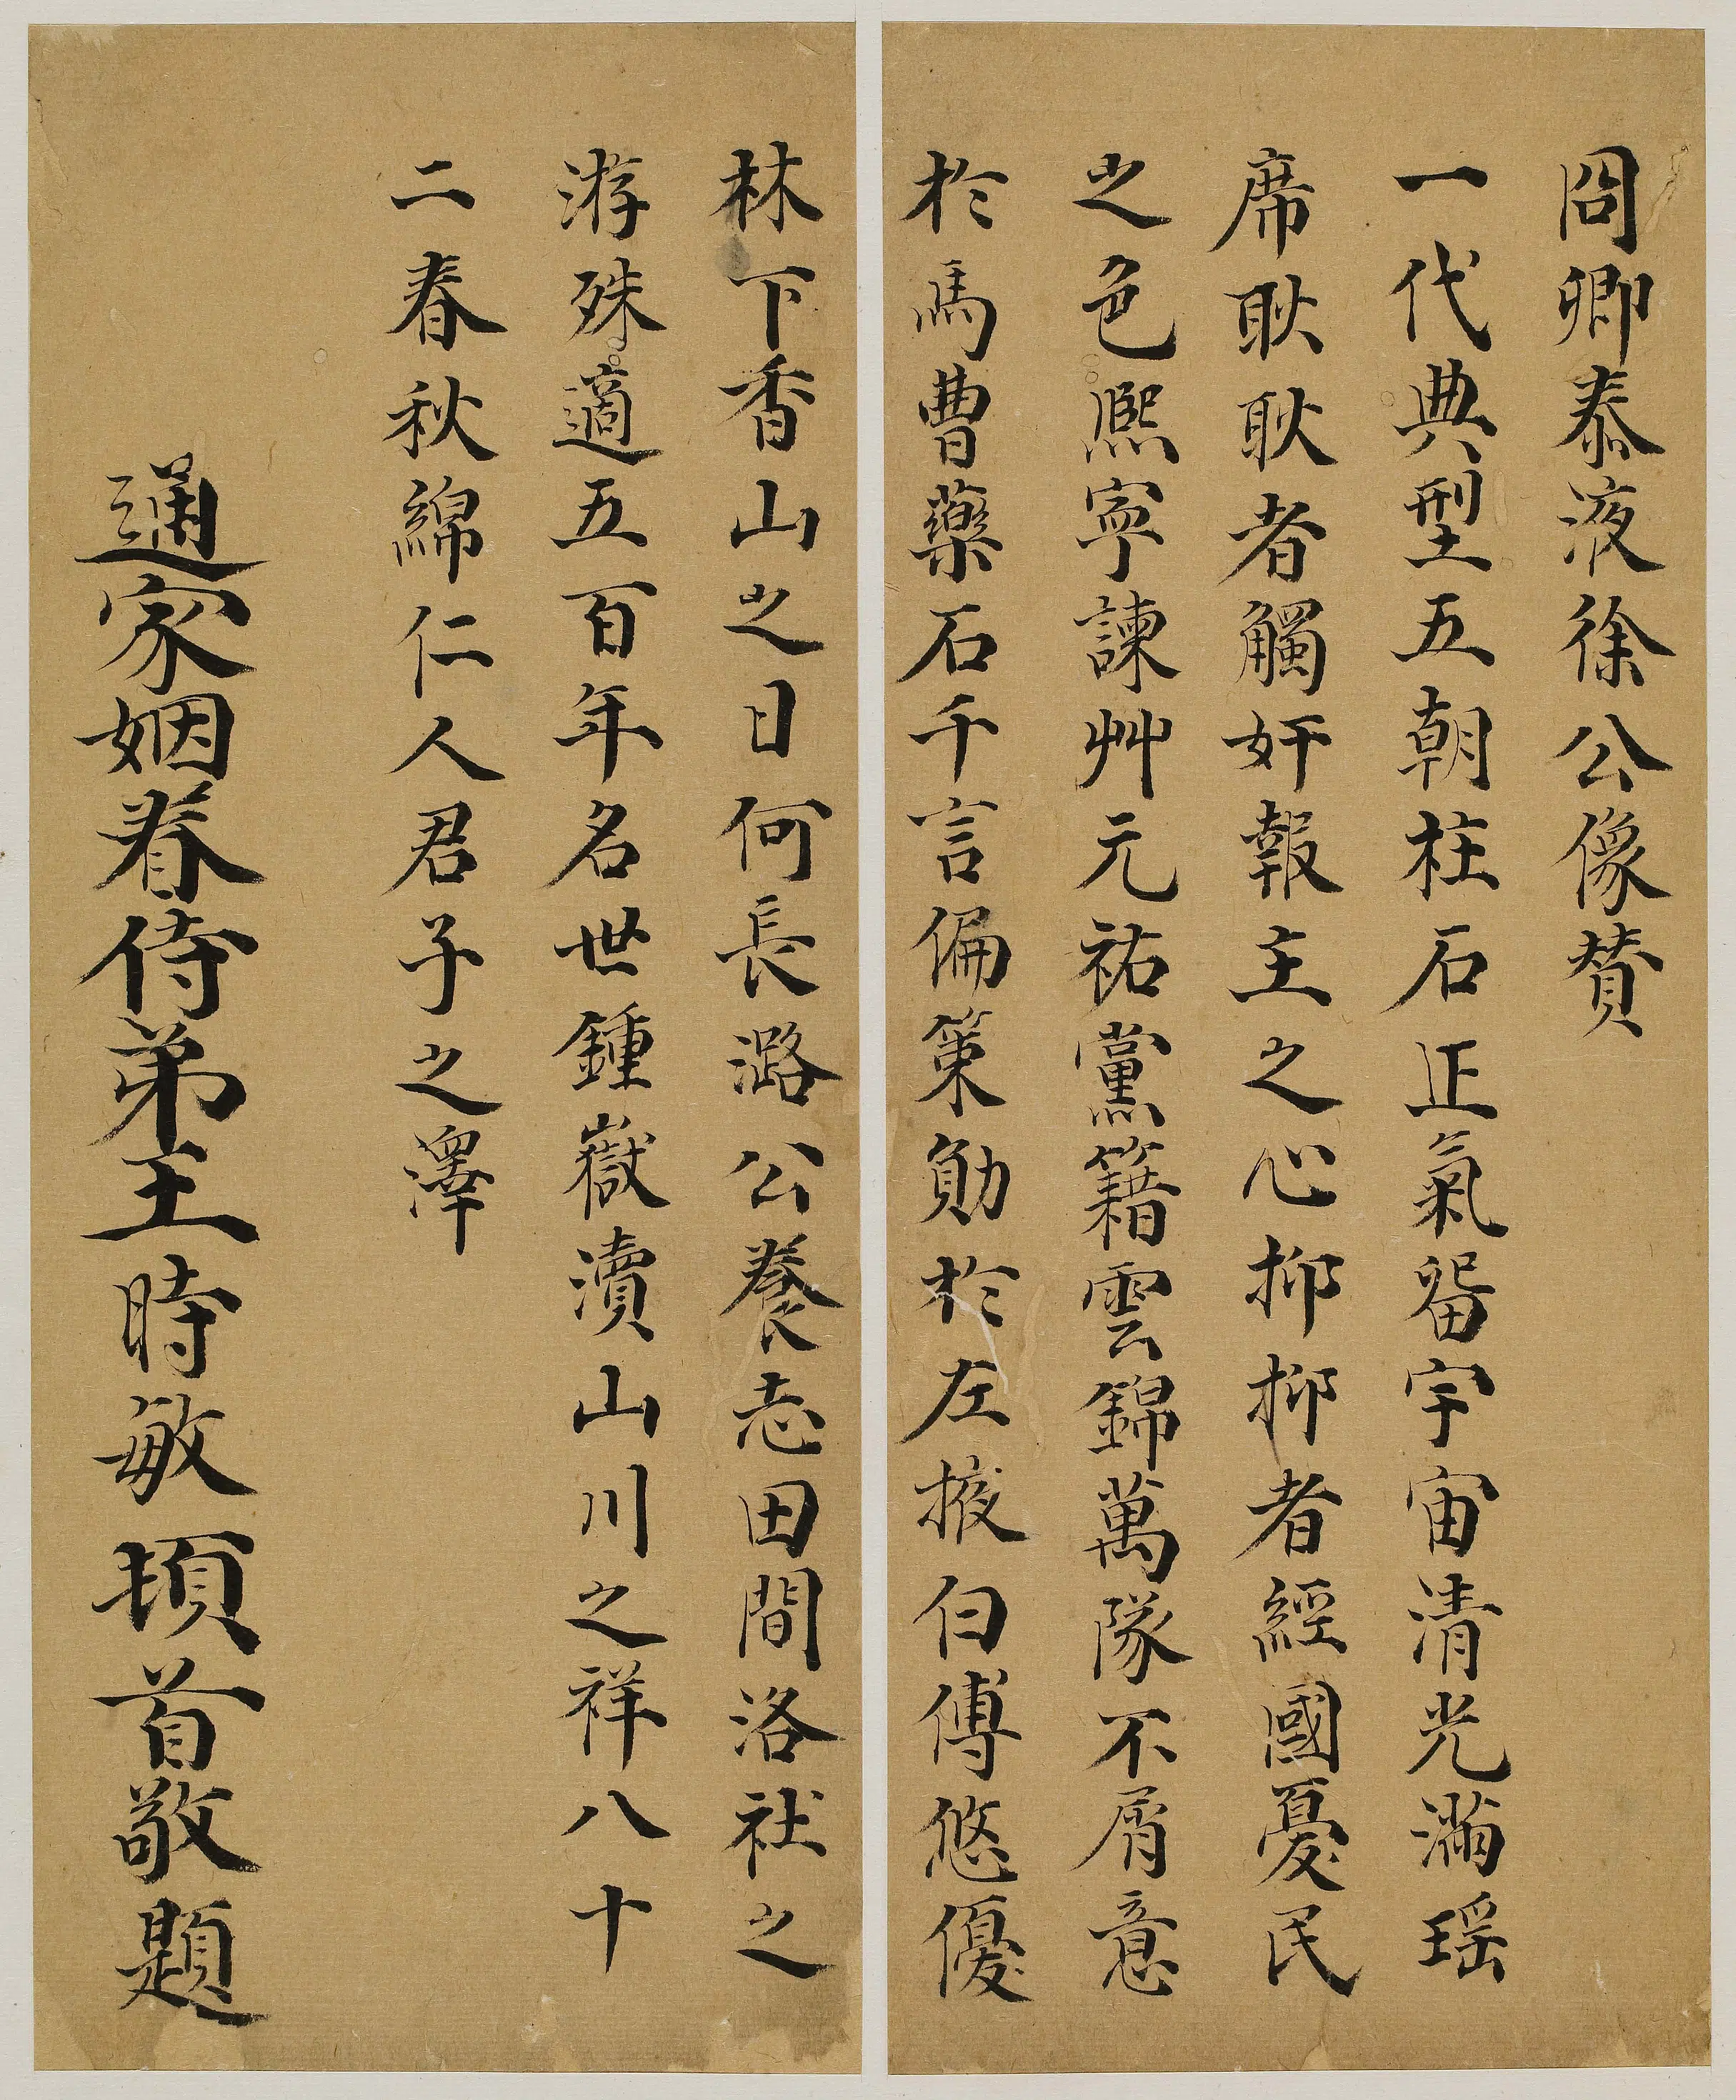 冏卿泰液徐公像贊
一代典型五朝柱石正氣畱宇宙清光滿瑶
席耿耿者觸奸報主之心抑抑者經國憂民
之色熈寧諫艸元祐黨籍雲錦萬隊不屑意
於馬曹藥石千言偏策勛於左掖白傅悠優
林下香山之日何長潞公養志田間洛社之
游殊適五百年名世鍾嶽瀆山川之祥八十
二春秋綿仁人君子之澤
通家姻眷侍弟王時敏頓首敬題